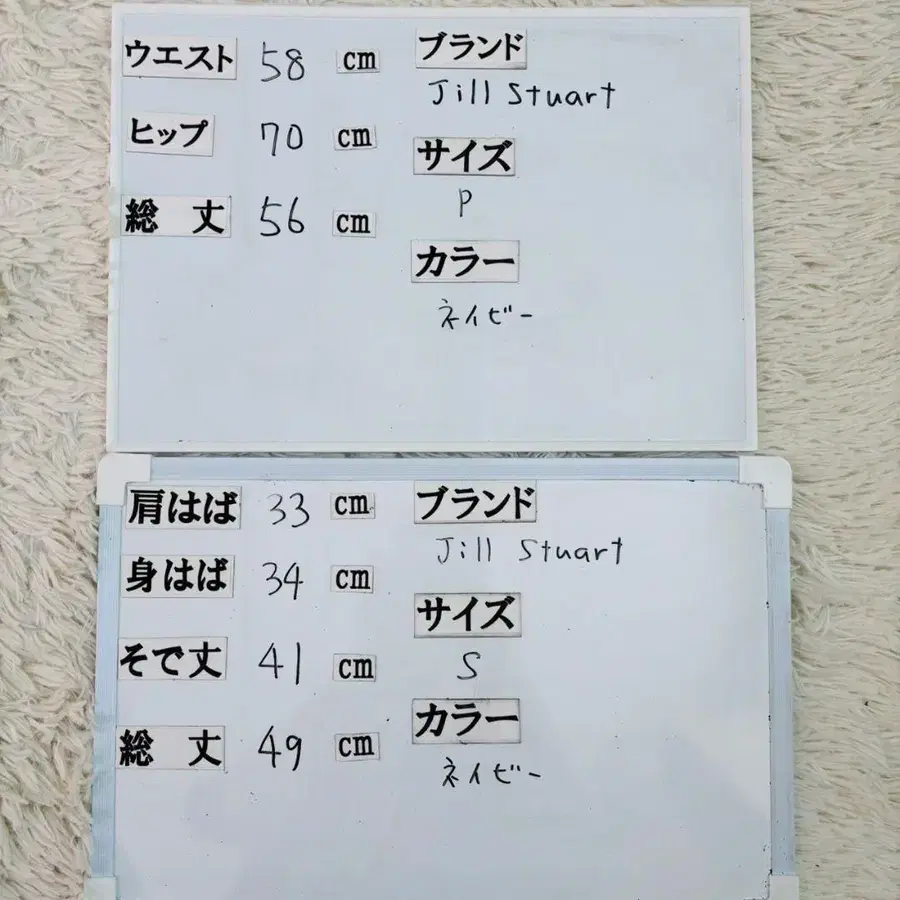 ウエスト 58 cm
ヒップ 70 cm
総丈 56 cm
ブランド
Jill Stuart
サイズ
P
カラー
ネイビー
肩はば 33 cm
身はば 34 cm
そで丈 41 cm
総丈 49 cm
ブランド
Jill Stuart
サイズ
S
カラー
ネイビー